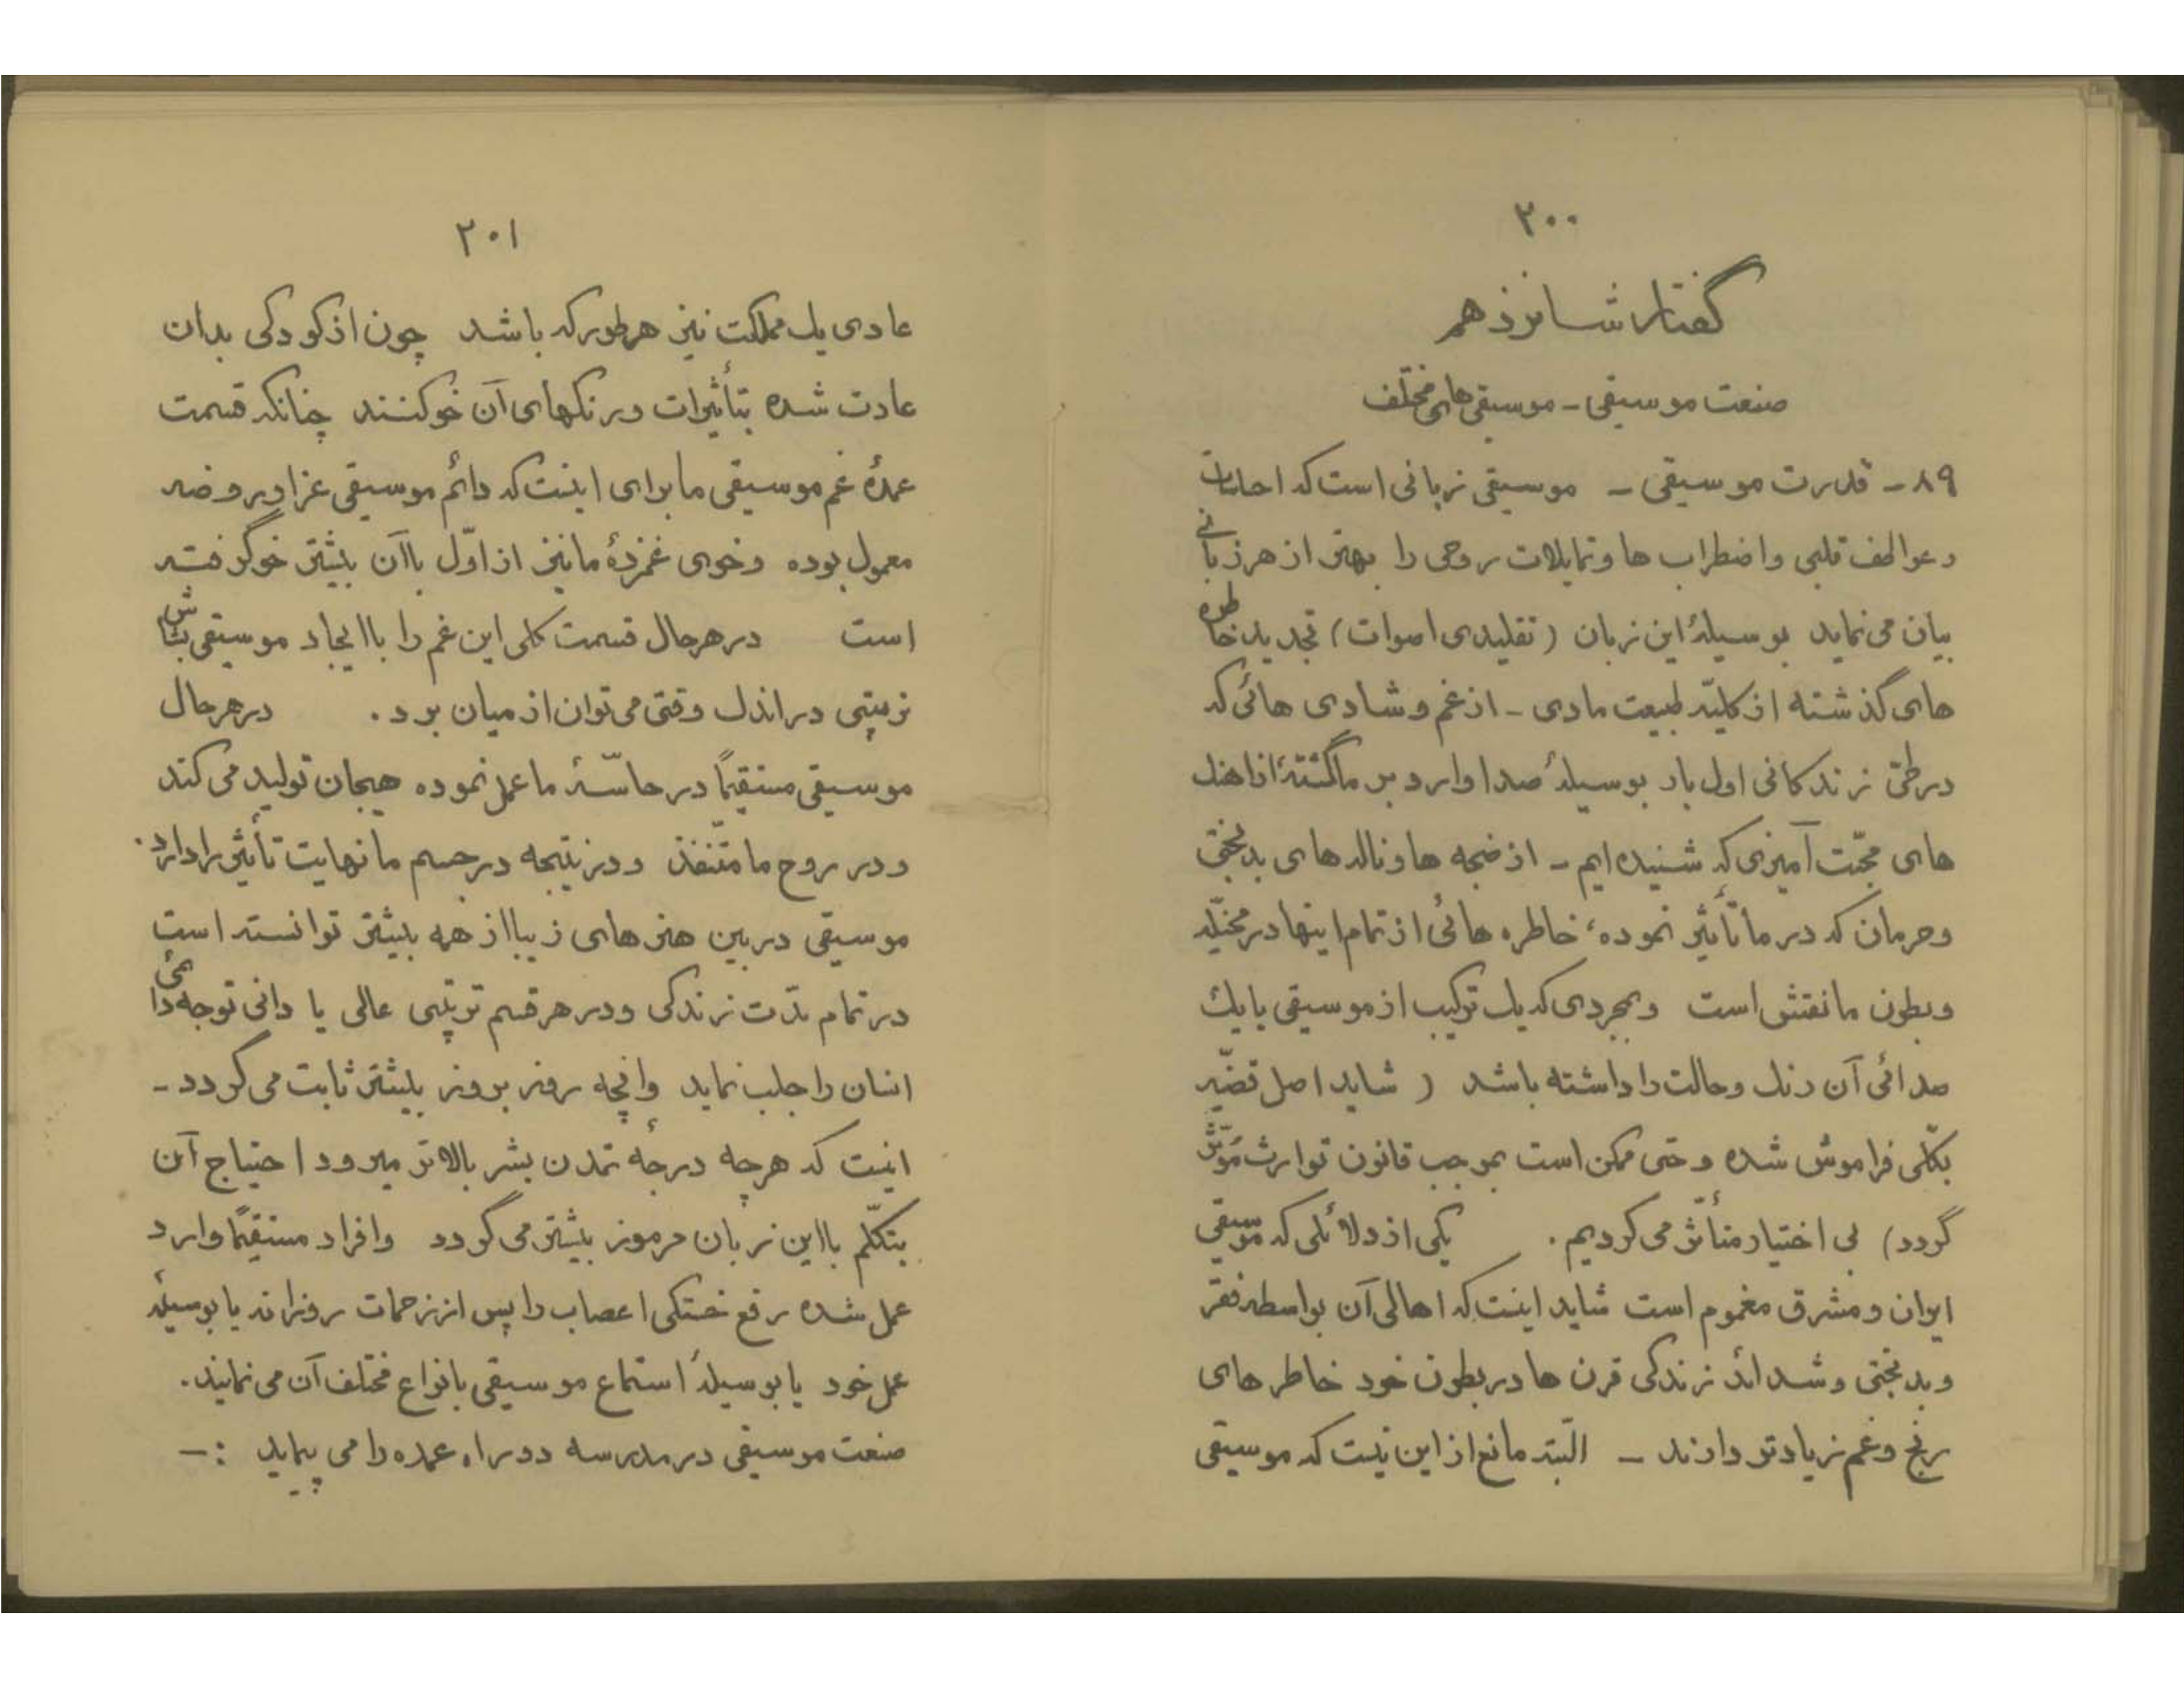 ۲۰۰
گفتار شانزدهم
صنعت موسیقی - موسیقی های مختلف
۸۹ - قدرت موسیقی - موسیقی زبانی است که احساسات
و عواطف قلبی و اضطراب ها و تمایلات روحی را بهتر از هر زبانی
بیان می نماید بوسیلهٔ این زبان (تقلیدی اصوات) تجدید خاطره
های گذشته از کلیّه طبیعت مادی - از غم و شادی هائی که
در طیّ زندگانی اول بار بوسیلهٔ صدا وارد بر ما گشته از اهنگ
های محبّت آمیزی که شنیده ایم - از ضجه ها و ناله های بدبختی
و حرمان که در ما تأثیر نموده، خاطره هائی از تمام اینها در مخیّله
و بطون ما نقش است و بمجردی که یک ترکیب از موسیقی یا یک
صدائی آن رنگ و حالت را داشته باشد ( شاید اصل قضیّه
بکلّی فراموش شده و حتی ممکن است بموجب قانون توارث مؤثّر
گردد) بی اختیار متأثّر می گردیم. یکی از دلائلی که موسیقی
ایران و مشرق مغموم است شاید اینست که اهالی آن بواسطه فقر
و بدبختی و شدائد زندگی قرن ها در بطون خود خاطر های
رنج و غم زیادتر دارند - البتّه مانع از این نیست که موسیقی
۲۰۱
عادی یک مملکت نیز هر طور که باشد چون از کودکی بدان
عادت شده بتأثیرات و رنگهای آن خو کنند چنانکه قسمت
عمدهٔ غم موسیقی ما برای اینست که دائم موسیقی عزا و روضه
معمول بوده و خوی غمزدهٔ ما نیز از اوّل باآن بیشتر خو گرفته
است در هر حال قسمت کلی این غم را باایجاد موسیقی بشاش
تربیتی در اندک وقتی می توان از میان برد. در هر حال
موسیقی مستقیماً در حاسّهٔ ما عمل نموده هیجان تولید می کند
و در روح ما متنفّذ و در نتیجه در جسم ما نهایت تأثیر را دارد.
موسیقی در بین هنر های زیبا از همه بیشتر توانسته است
در تمام مدّت زندگی و در هر قسم ترتیبی عالی یا دانی توجه دائمی
انسان را جلب نماید و انچه روز بروز بیشتر ثابت می گردد -
اینست که هرچه درجهٔ تمدن بشر بالاتر میرود احتیاج آن
بتکلّم بااین زبان مرموز بیشتر می گردد و افراد مستقیماً وارد
عمل شده رفع خستگی اعصاب را پس از زحمات روزانه یا بوسیلهٔ
عمل خود یا بوسیلهٔ استماع موسیقی بانواع مختلف آن می نمایند.
صنعت موسیقی در مدرسه دو راه عمده را می پیماید :-